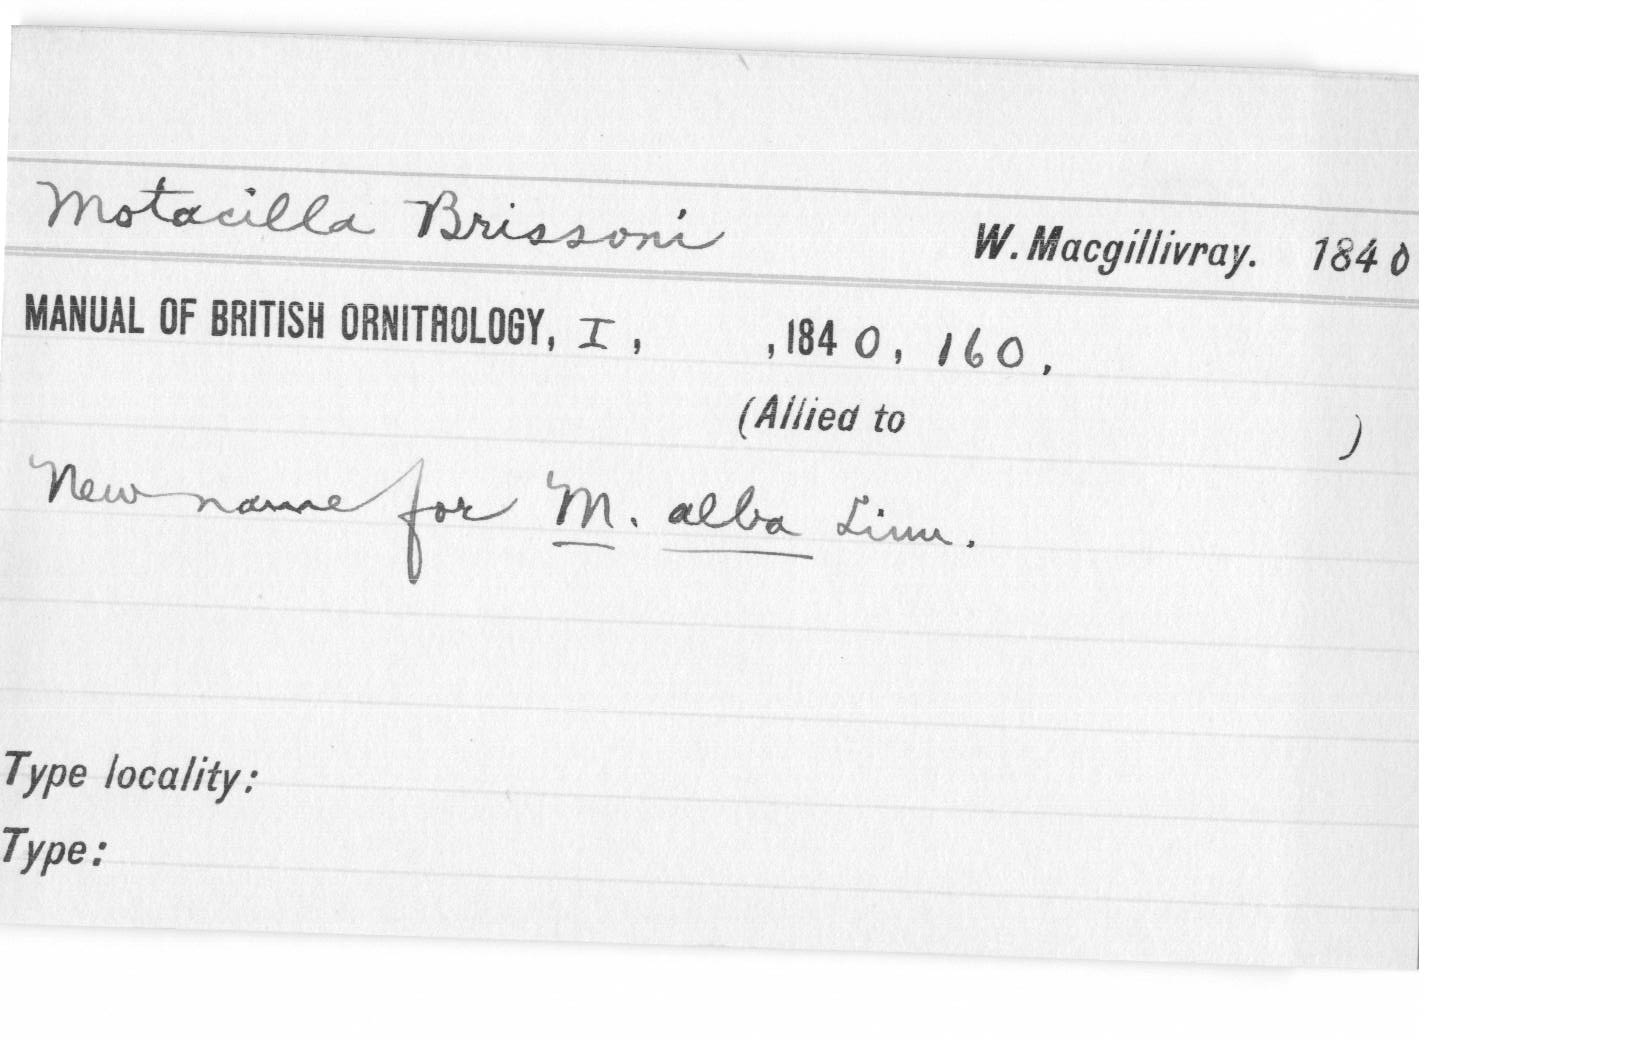 Motacilla Brissoni W. Macgillivray. 1840
MANUAL OF BRITISH ORNITHOLOGY, I, ,1840, 160,
(Allied to )
New name for M. alba Linn.
Type locality:
Type: